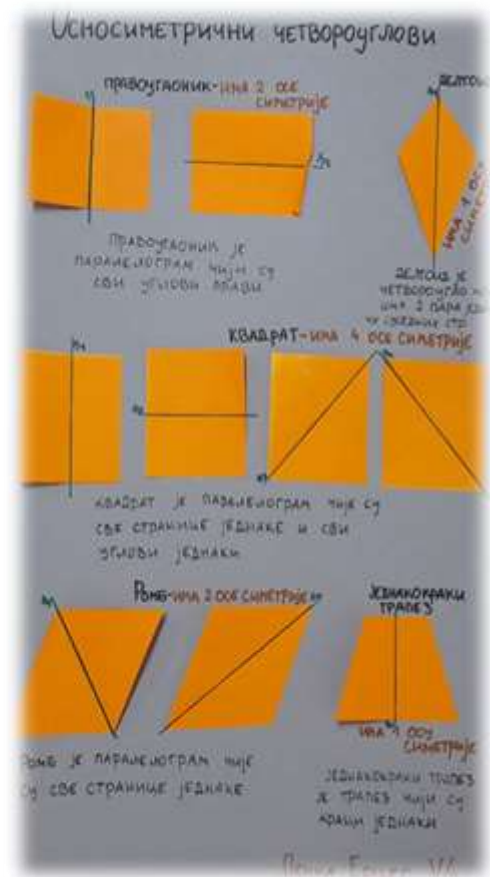 Осносиметрични четвороуглови
ПРАВОУГАОНИК-ИМА 2 ОСЕ
СИМЕТРИЈЕ
ДЕЛТОИД
ИМА 1 ОСУ
ПРАВОУГАОНИК ЈЕ
ПАРАЛЕЛОГРАМ ЧИЈИ СУ
СВИ УГЛОВИ ПРАВИ
ДЕЛТОИД ЈЕ
ЧЕТВОРОУГАО
ИМА 2 ПАРА
КВАДРАТ-ИМА 4 ОСЕ СИМЕТРИЈЕ
КВАДРАТ ЈЕ ПАРАЛЕЛОГРАМ ЧИЈЕ СУ
СВЕ СТРАНИЦЕ ЈЕДНАКЕ И СВИ
УГЛОВИ ЈЕДНАКИ
РОМБ-ИМА 2 ОСЕ СИМЕТРИЈЕ
ЈЕДНАКОКРАКИ
ТРАПЕЗ
ИМА 1 ОСУ
СИМЕТРИЈЕ
РОМБ ЈЕ ПАРАЛЕЛОГРАМ ЧИЈЕ
СУ СВЕ СТРАНИЦЕ ЈЕДНАКЕ
ЈЕДНАКОКРАКИ ТРАПЕЗ
ЈЕ ТРАПЕЗ ЧИЈИ СУ
КРАЦИ ЈЕДНАКИ